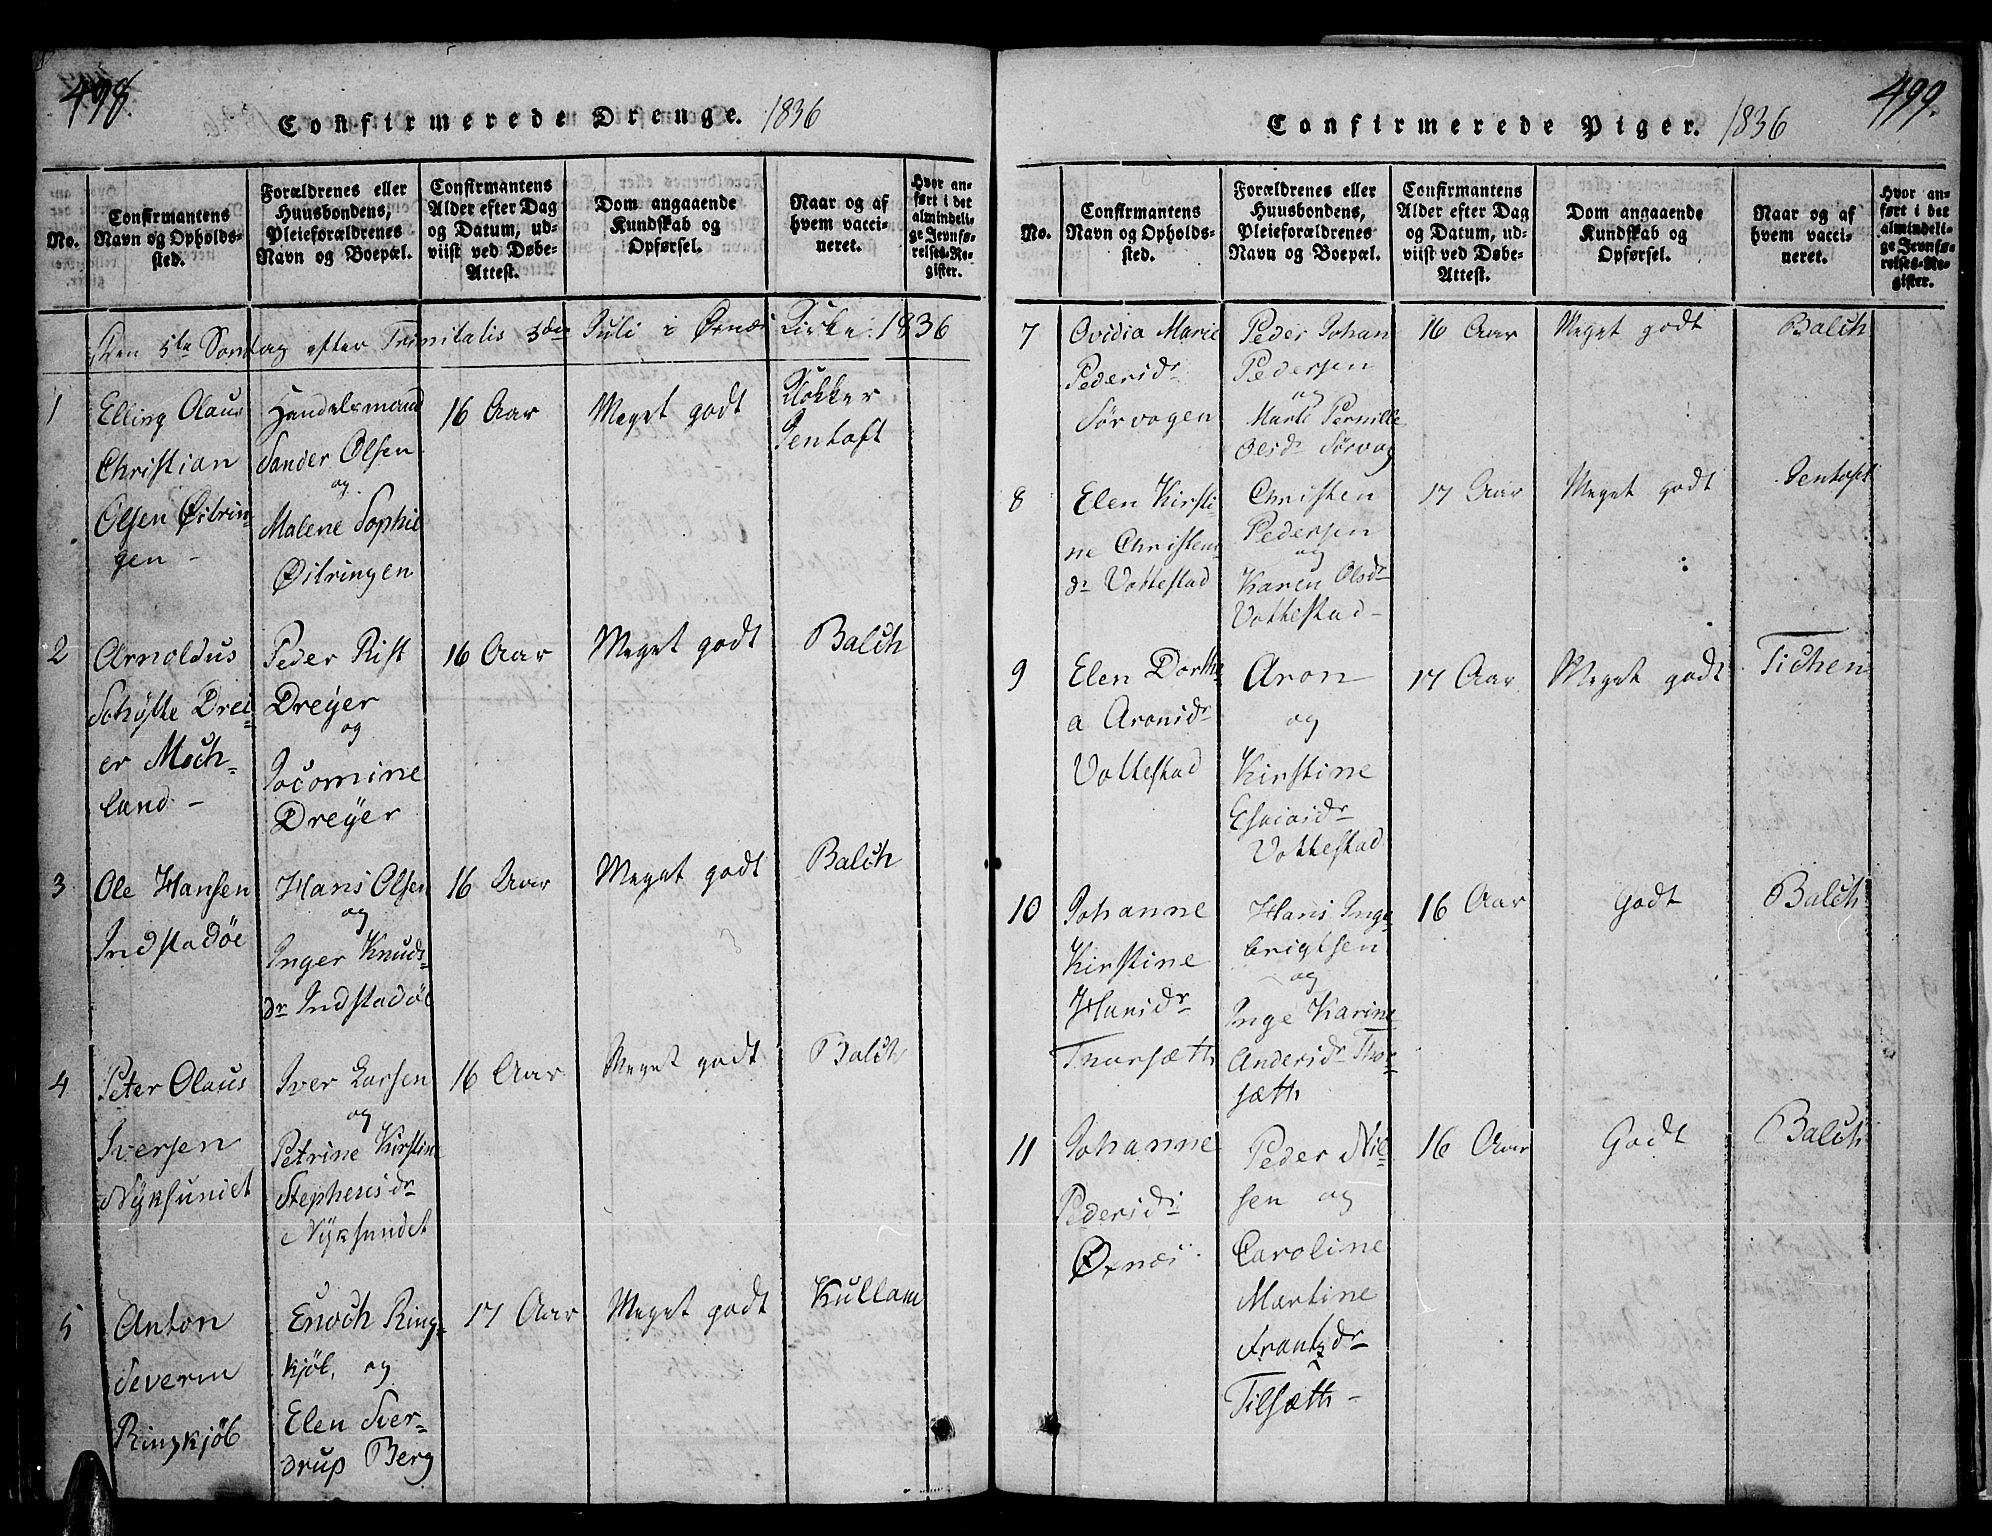 498.
Confirmerede Drenge. 1836
No.
Confirmantens
Navn og Opholds-
sted.
Forældrenes eller
Huusbondens,
Pleieforældrenes
Navn og Boepæl.
Confirmantens
Alder efter Dag
og Datum, ud-
viist ved Døbe-
Attest.
Dom angaaende
Kundskab og
Opførsel.
Naar og af
hvem vacci-
neret.
Hvor an-
ført i det
almindeli-
ge Jevnfø-
relses-Re-
gister.
Den 5te Søndag efter Trinitatis 3die Juli i Øxnæs Kirke. 1836
1
Elling Olaus
Christian
Olsen Østrin-
gen -
Handelsmand
Sander Olsen
og
Malene Sophie
Østringen
16 Aar
Meget godt
Klokker
Jentoft
2
Arnoldus
Schøtte Drei-
er Moch-
land. -
Peder Rist
Dreyer
og
Jacomine
Dreyer
16 Aar
Meget godt
Balch
3
Ole Hansen
Indstadøe
Hans Olsen
og
Inger Knuds-
dr Indstadøe
16 Aar
Meget godt
Balch
4
Peter Olaus
Iversen
Nyksundet
Iver Larsen
og
Petrine Kirstine
Stephensdr
Nyksundet
16 Aar
Meget godt
Balch
5
Anton
Severin
Ringkjöb
Enoch Ring-
kjöb, og
Elen Sver-
drup Berg
17 Aar
Meget godt
Kullam
499.
Confirmerede Piger. 1836
No.
Confirmantens
Navn og Opholds-
sted.
Forældrenes eller
Huusbondens,
Pleieforældrenes
Navn og Boepæl.
Confirmantens
Alder efter Dag
og Datum, ud-
viist ved Døbe-
Attest.
Dom angaaende
Kundskab og
Opførsel.
Naar og af
hvem vacci-
neret.
Hvor an-
ført i det
almindeli-
ge Jevnfø-
relses-Re-
gister.
7
Ovidia Marie
Pedersdr
Sørvogen
Peder Johan
Pedersen
og
Marte Pernille
Olsdr Sørvog
16 Aar
Meget godt
Balch
8
Elen Kirsti-
ne Christens-
dr Vottestad
Christen
Pedersen
og
Karen Olsdr
Vottestad -
17 Aar
Meget godt
Jentoft
9
Elen Dorthe-
a Aronsdr
Vottestad
Aron
og
Kirstine
Esaiasdr
Vottestad
17 Aar
Meget godt
Tichen
10
Johanne
Kirstine
Hansdr
Thorsæth
Hans Inge-
brigtsen
og
Inge Karine
Andersdr Thor-
sæth
16 Aar
Godt
Balch
11
Johanne
Pedersdr
Øxnæs.
Peder Niel-
sen og
Caroline
Martine
Frantzdr
Tilsæth -
16 Aar
Godt
Balch